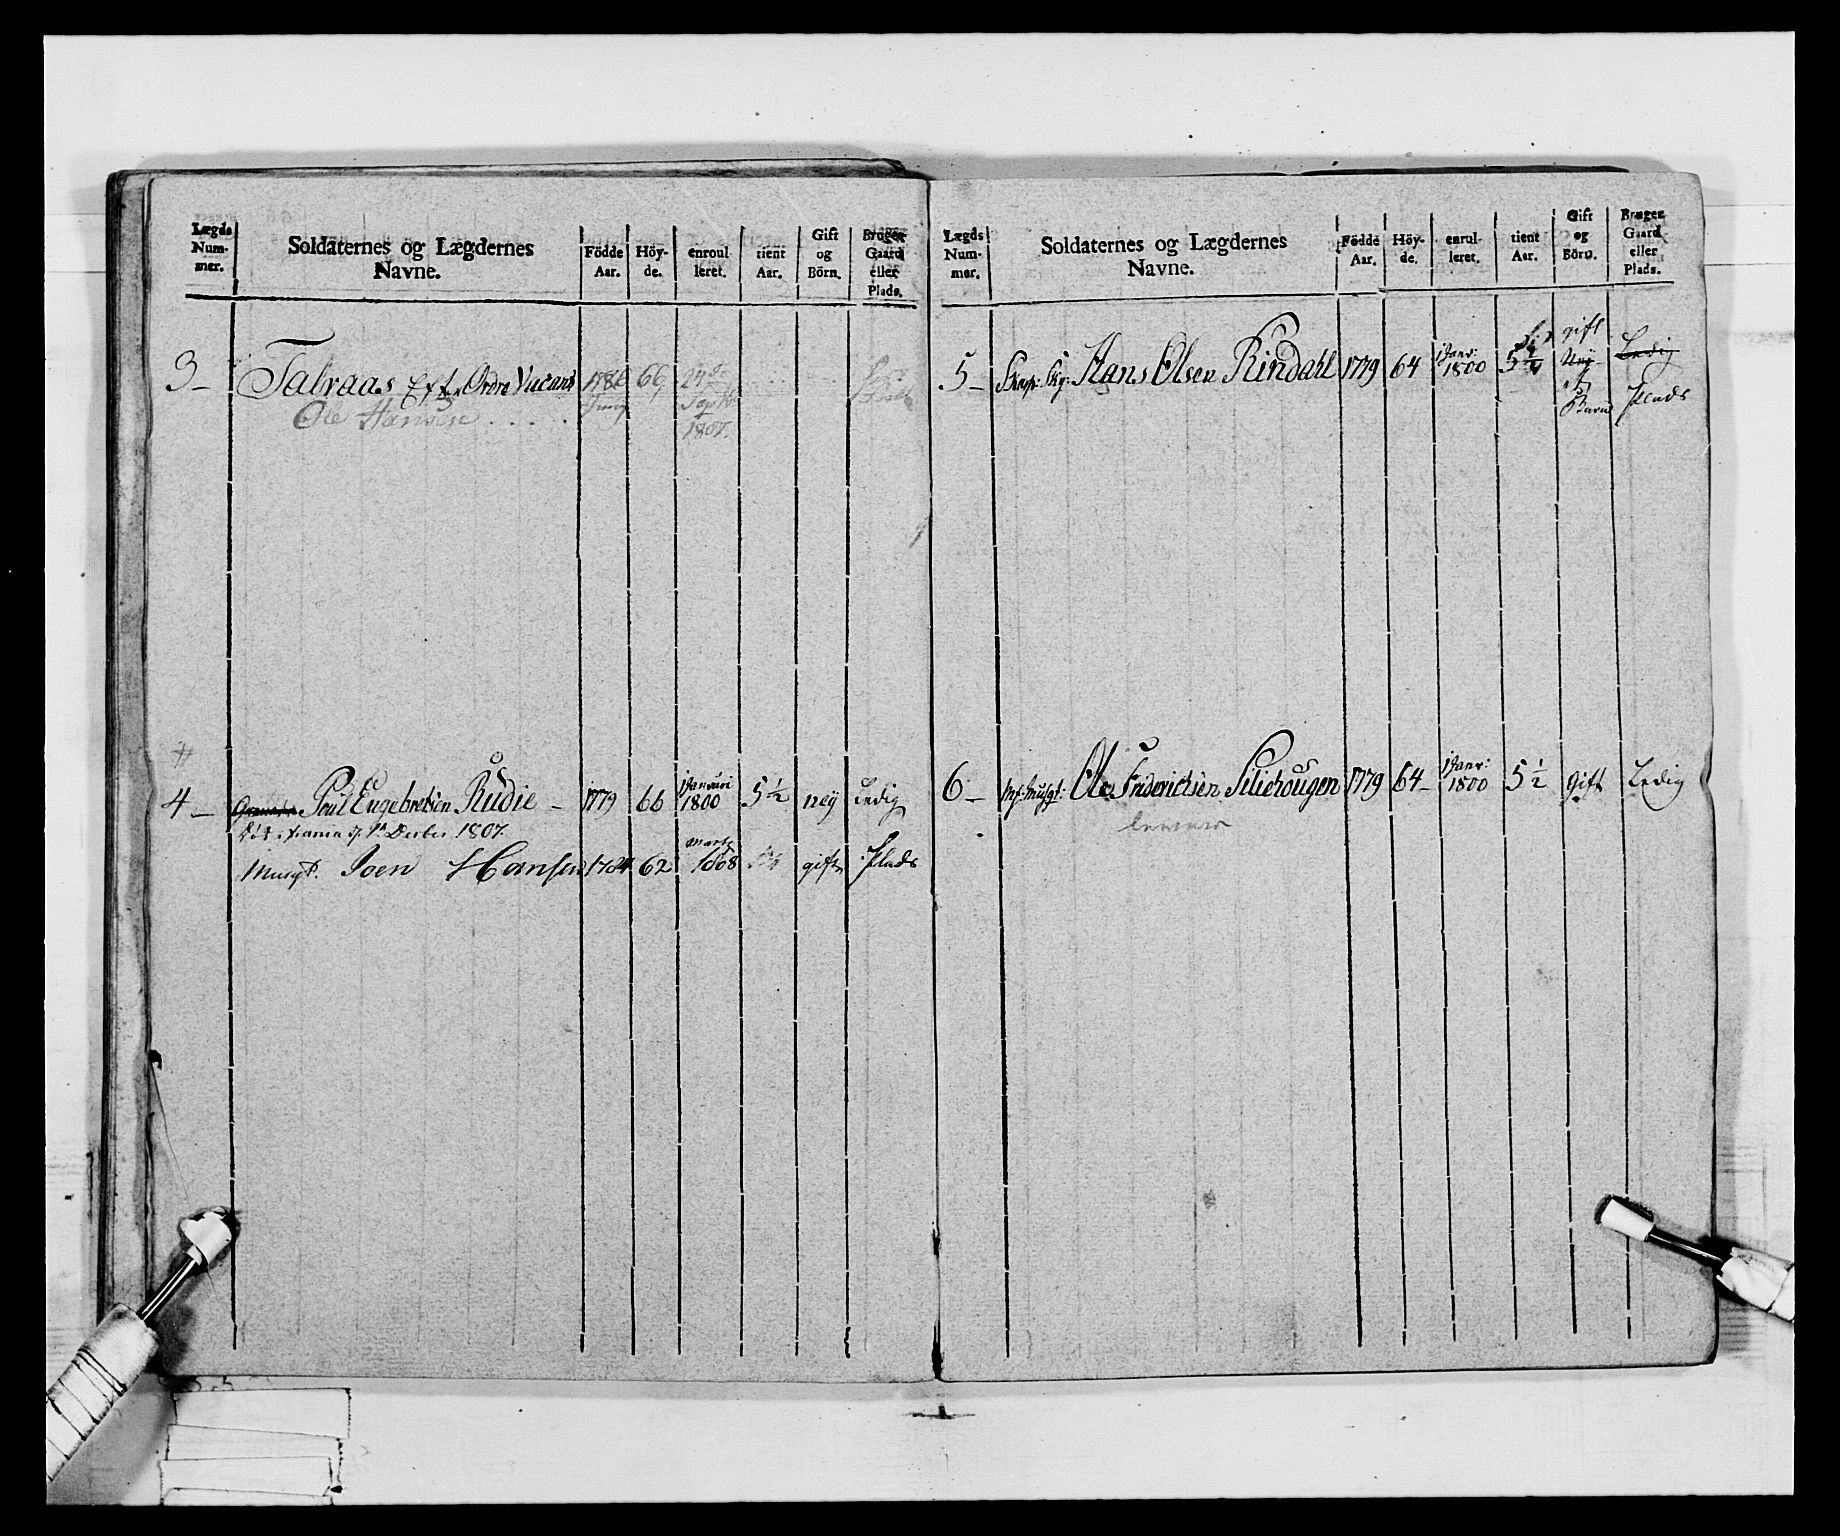 Lægds Num- mer.
Soldaternes og Lægdernes Navne.
Födde Aar.
Höy- de.
enroul leret.
tient Aar.
Gift og Börn.
Bruger Gaard eller Plads.
3 Talraas Efter Ordre Vacant 1786 66
Ole Hansen
1807.
4 Poul Engebretsen Rudie 1779 66 1 Januari 1800 5 ½ ney Ledig
1807.
Musqt. Joen Hansen 1784 62 Marty 1808 gift Plads
Lægds Num- mer.
Soldaternes og Lægdernes Navne.
Födde Aar.
Höy- de.
enrul- leret.
tient Aar.
Gift og Börn.
Bruger Gaard eller Plads.
5 Hans Olsen Rindahl 1779 64 1 Janr: 1800 5 gift Ney Ledig
Plads
6 Ole Friderichsen Siliehougen 1779 64 1 Janr: 1800 5 ½ Gift Ledig